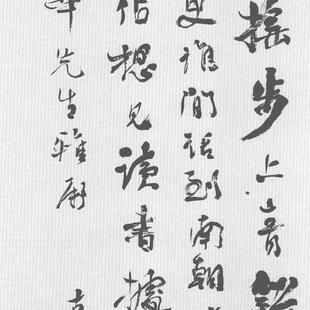 摇步上青
更谁闲话到南朝
想见读书
先生雅属